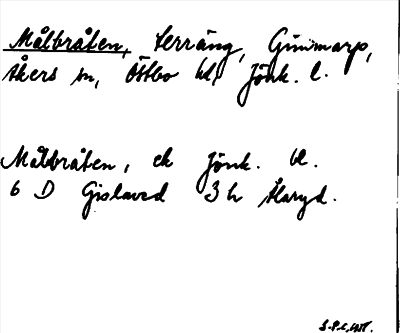 Målbråten, terräng, Gimmarp,
Åkers sn, Östbo hd, Jönk. l.
Målbråten, ek Jönk. bl.
6 D Gislaved 3 h Åaryd.